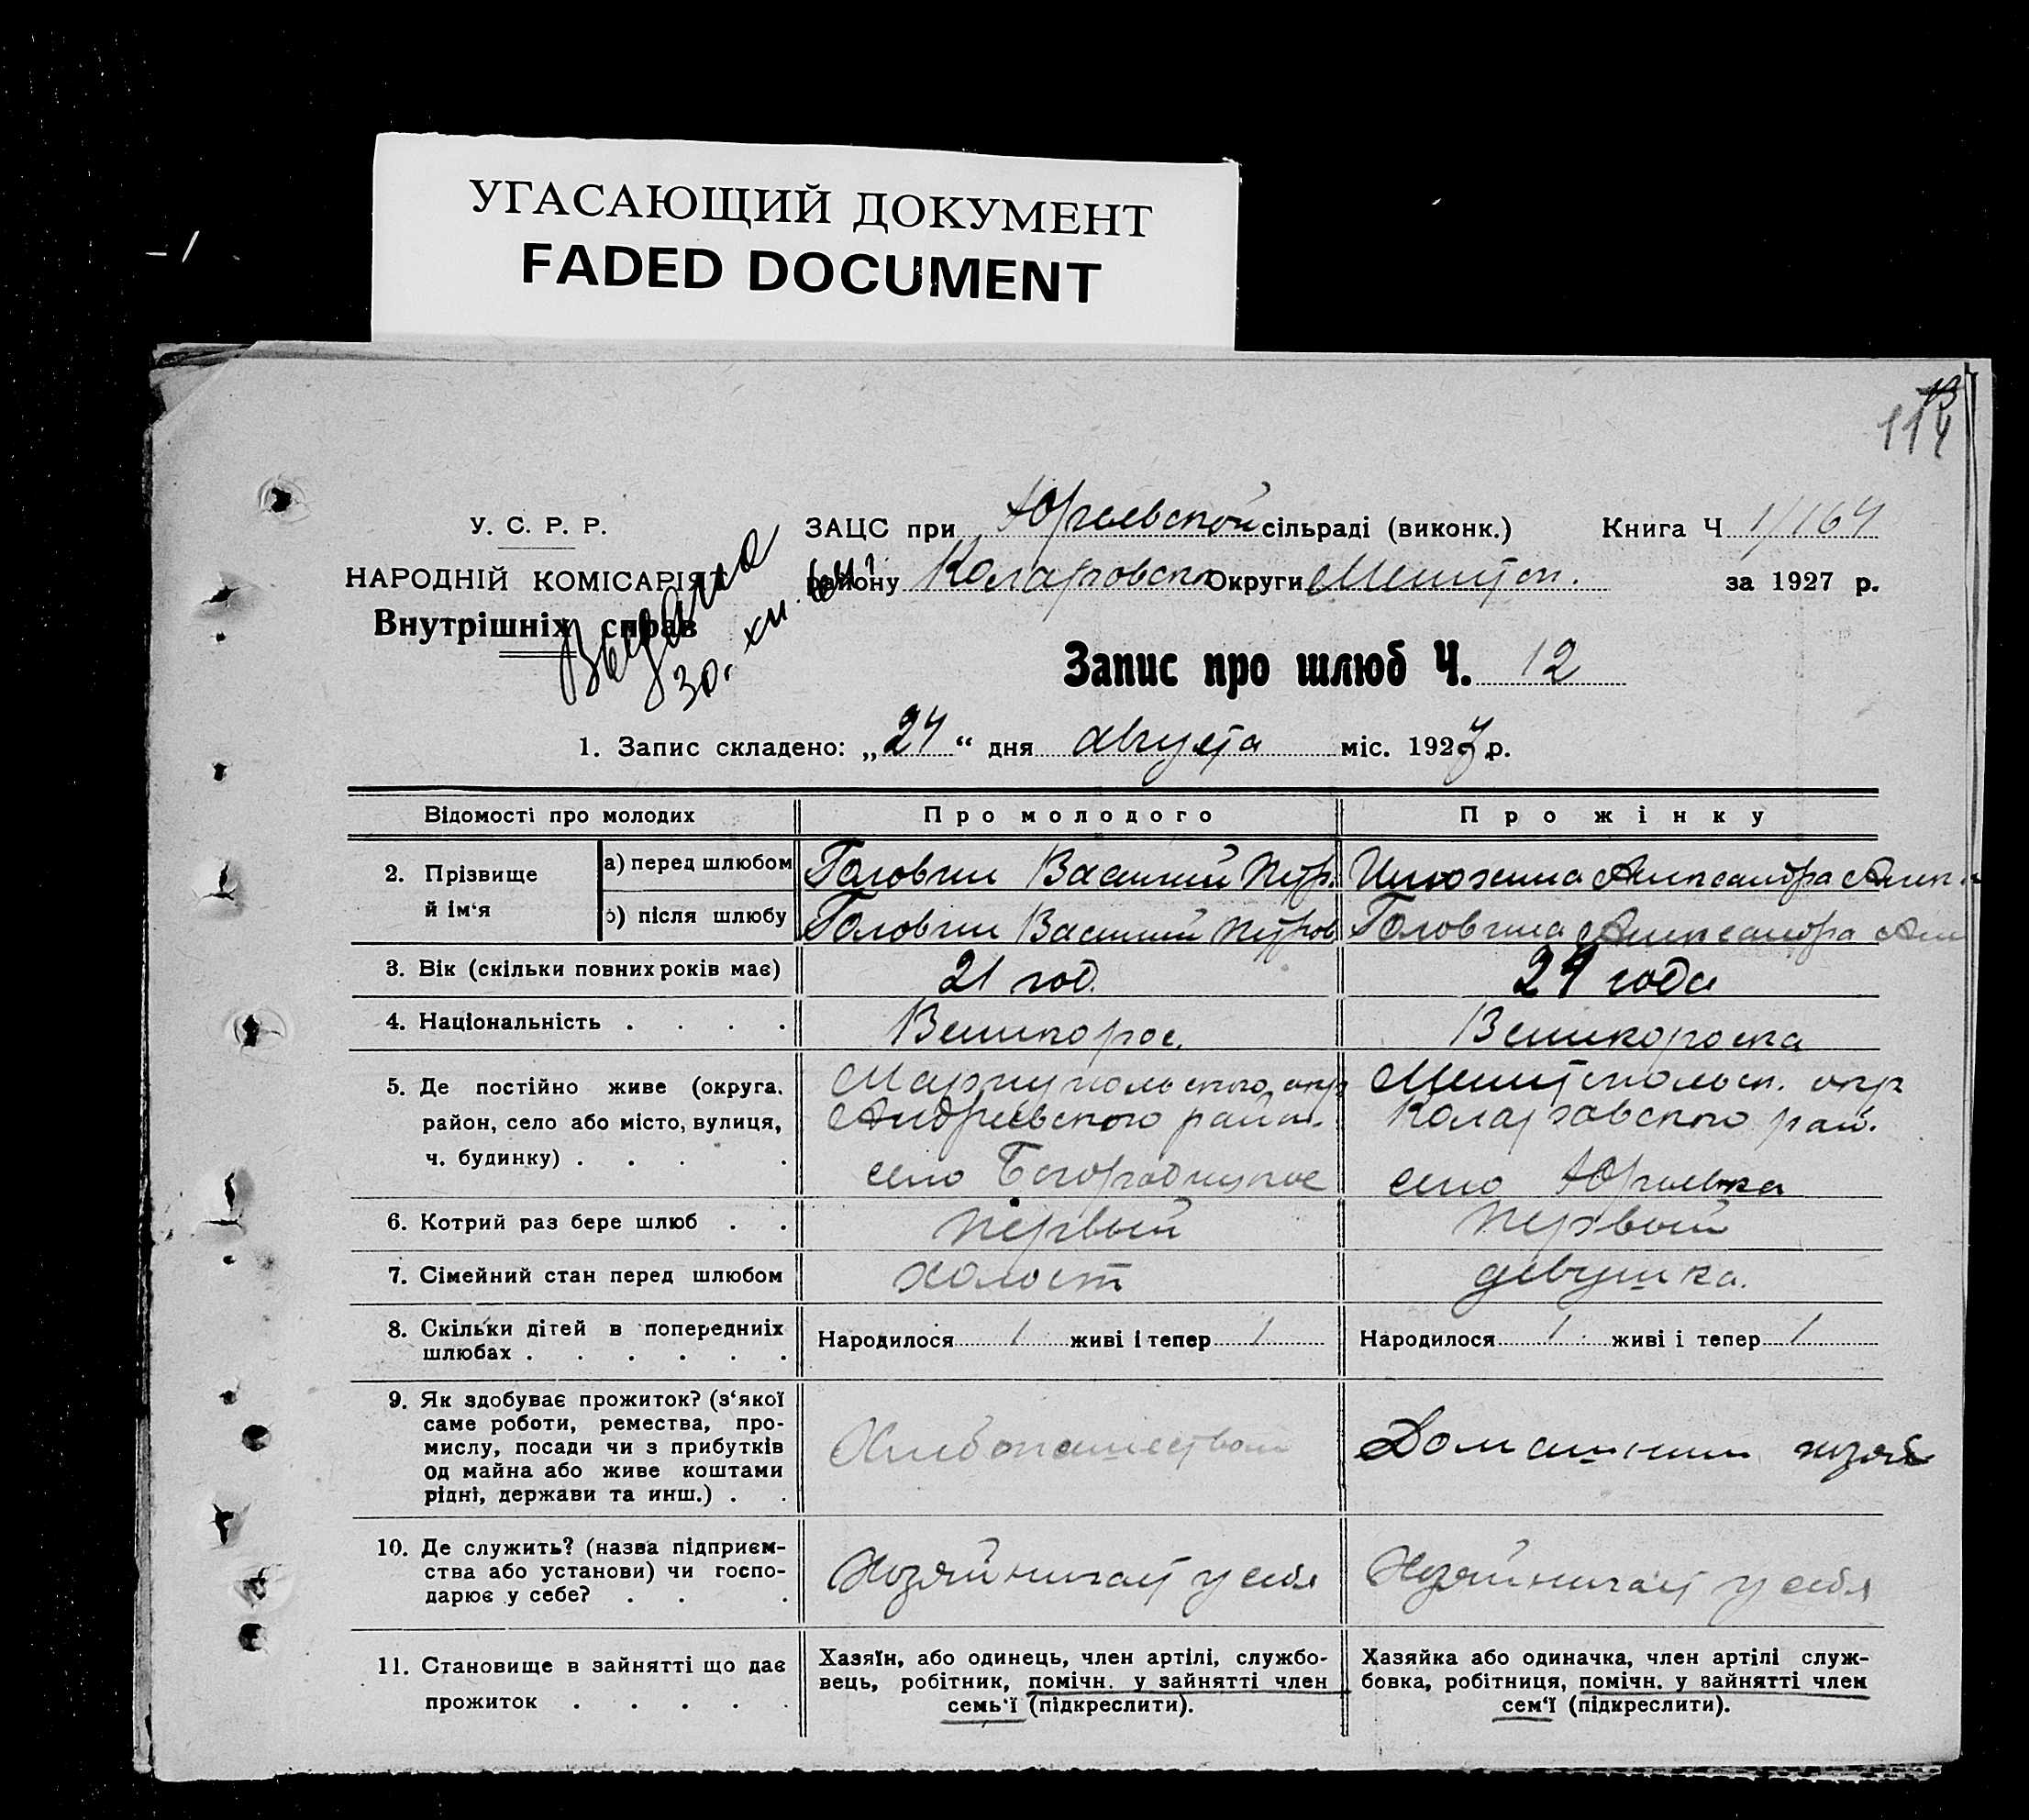 УГАСАЮЩИЙ ДОКУМЕНТ
FADED DOCUMENT
114
У. С. Р. Р.
НАРОДНІЙ КОМІСАРІЯТ
Внутрішніх справ
Выдано
30. XII.
ЗАЦС при Юрьевской сільраді (виконк.)
Книга Ч 1/164
району Коларовск Округи Мелитоп.
за 1927 р.
Запис про шлюб Ч. 12
1. Запис складено: „24“ дня августа міс. 1927 р.
Відомості про молодих
Про молодого
Про жінку
2. Прізвище й ім‘я
а) перед шлюбом
Головин Василий Петр.
Александра
б) після шлюбу
Головин Василий Петров
Головина Александра
3. Вік (скільки повних років має)
21 год.
24 года
4. Національність . . . .
Великорос.
Великороска
5. Де постійно живе (округа.
район, село або місто, вулиця,
ч. будинку) . . . .
Мариупольского окр
Андреевского район.
село Богородицкое
Мелитопольск. окр
Коларовского рай.
село Юрьевка
6. Котрий раз бере шлюб . .
первый
первый
7. Сімейний стан перед шлюбом
холост
девушка.
8. Скільки дітей в попередниіх
шлюбах . . . . . .
Народилося / живі і тепер /
Народилося / живі і тепер /
9. Як здобуває прожиток? (з‘якої
саме роботи, ремества, про-
мислу, посади чи з прибутків
од майна або живе коштами
рідні, держави та инш.) . .
Хлебопашеством
Домашним хозяй
10. Де служить? (назва підприєм-
ства або установи) чи госпо-
дарює у себе? . . .
Хозяйничает у себя
Хозяйничает у себя
11. Становище в зайнятті що дає
прожиток . . . . .
Хазяїн, або одинець, член артілі, службо-
вець, робітник, помічн. у зайнятті член
семь‘ї (підкреслити).
Хазяйка або одиначка, член артілі служ-
бовка, робітниця, помічн. у зайнятті член
сем‘ї (підкреслити).